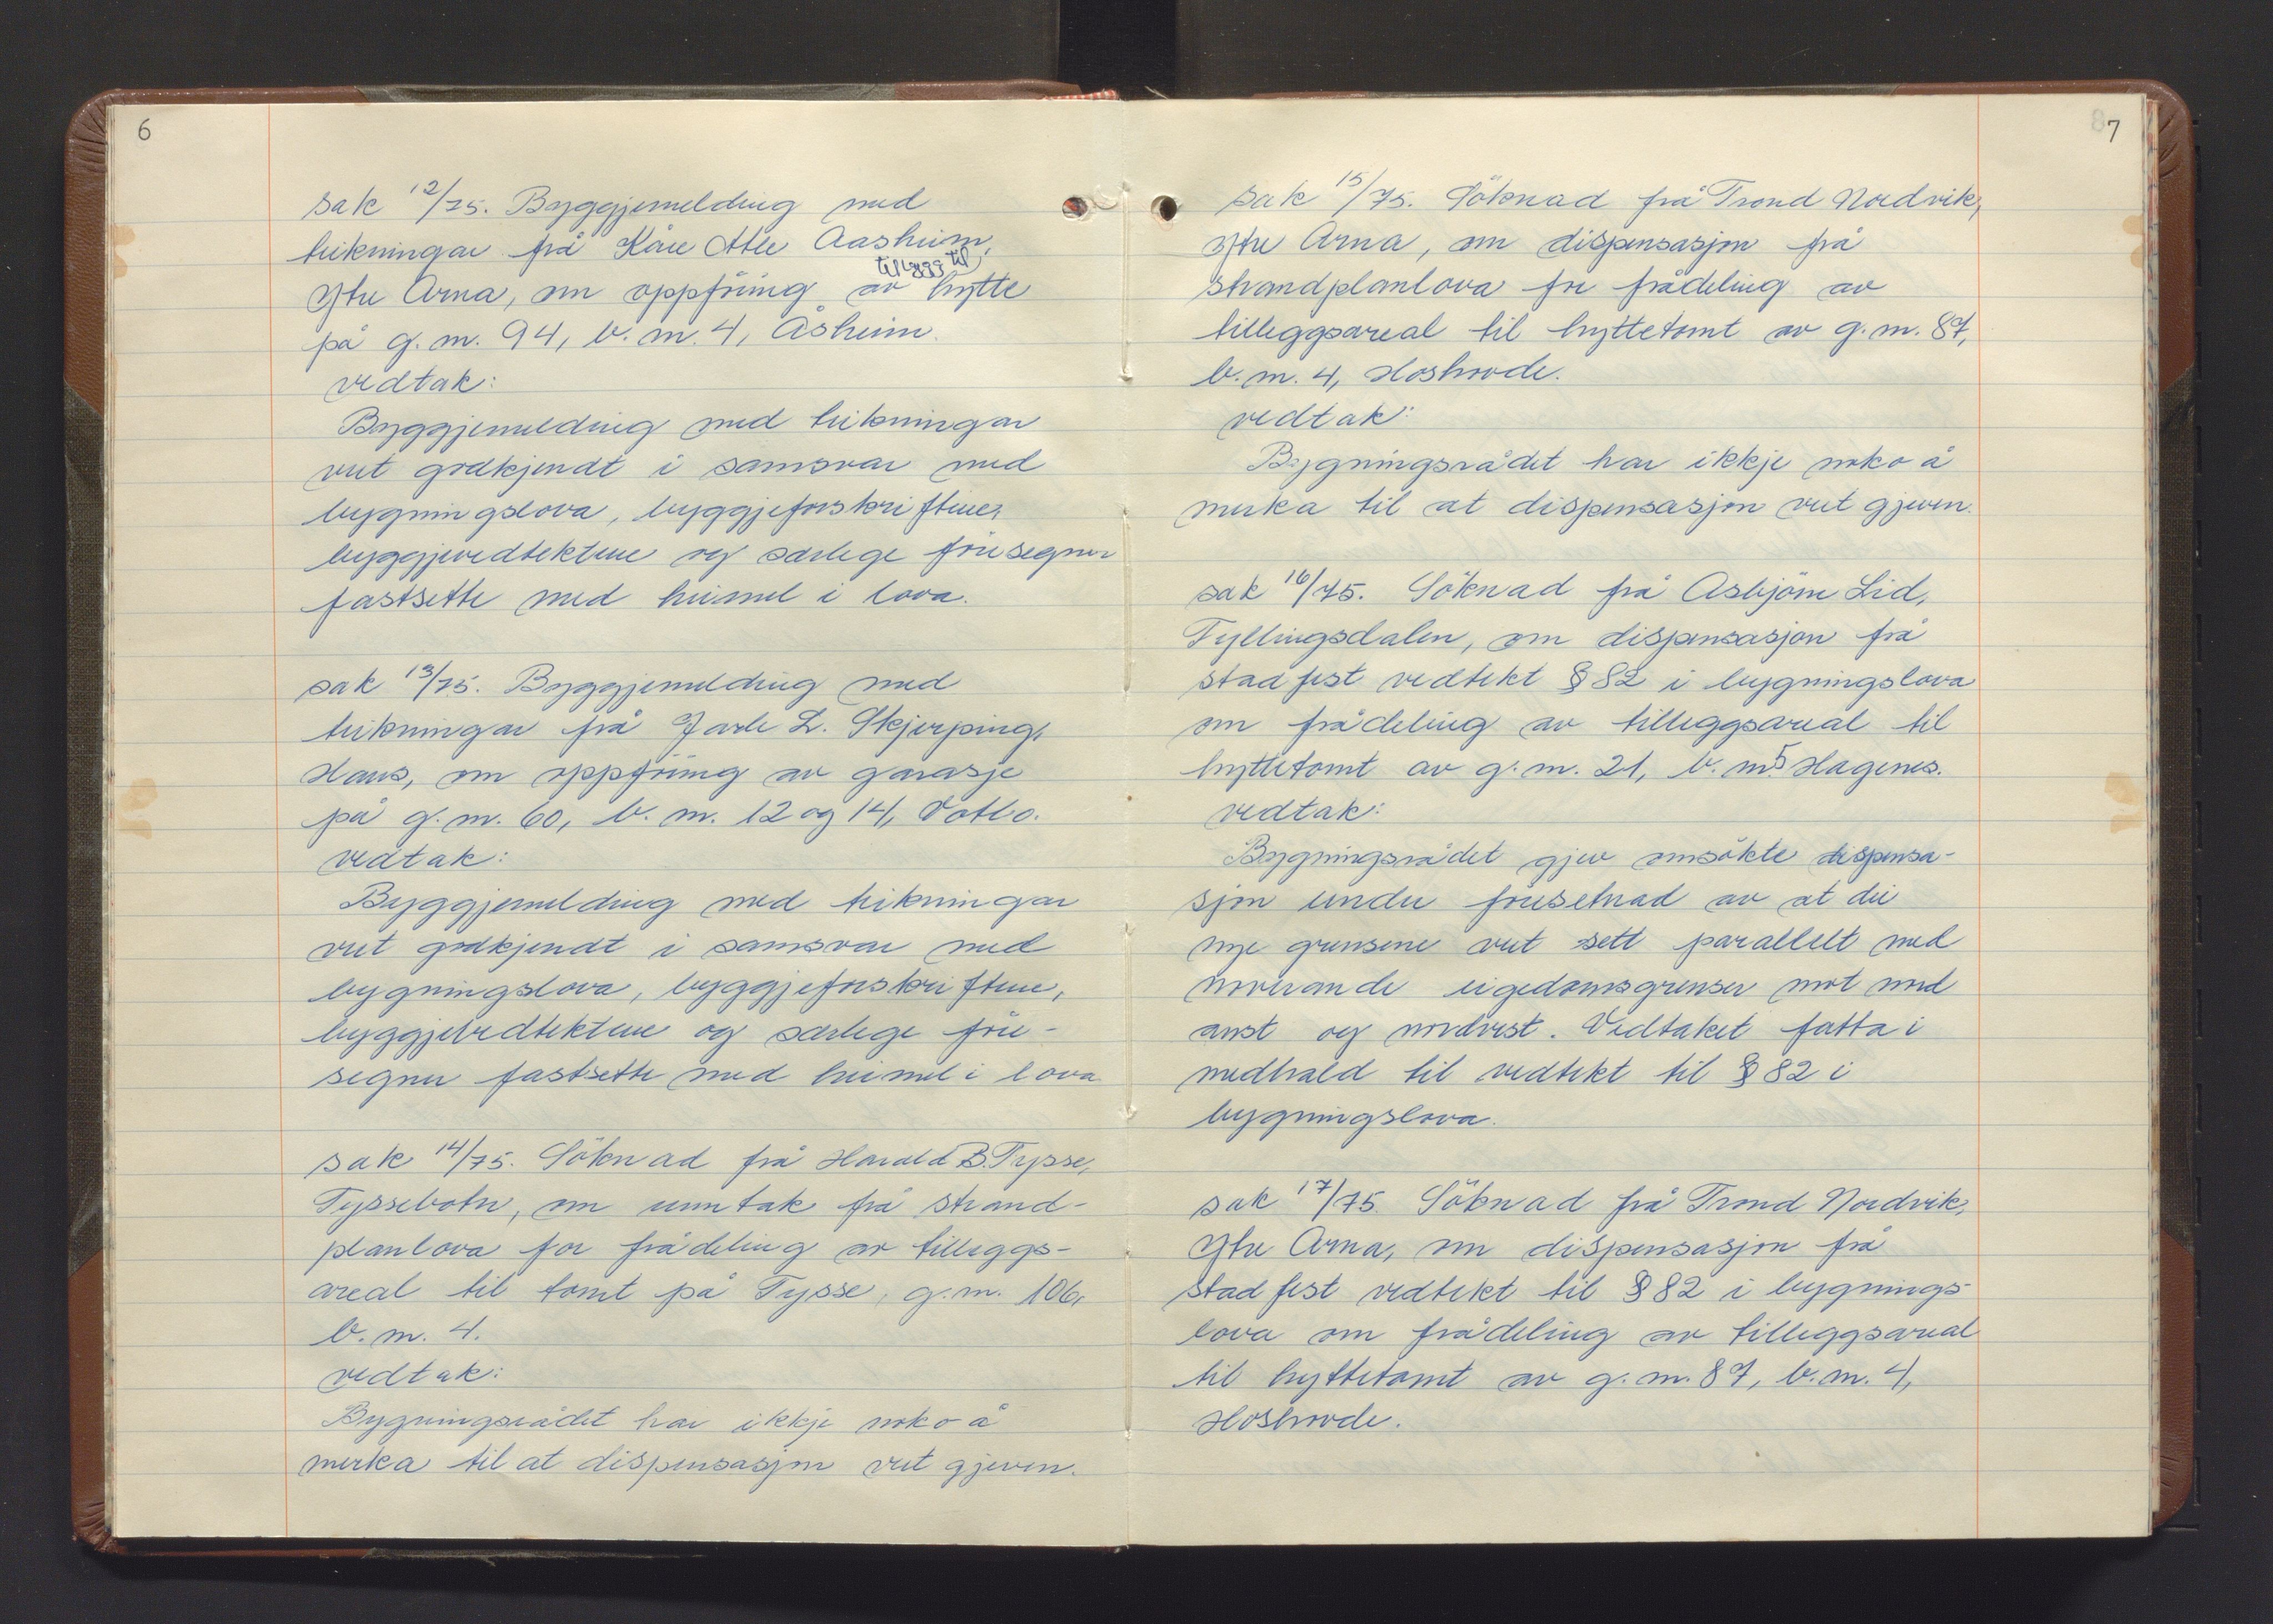 6
sak 12/75. Byggjemelding med
teikningar frå Kåre Atle Aasheim,
Ytre Arna, om oppföring av tilbygg til hytte
på g.nr. 94, b.nr. 4, Åsheim.
vedtak:
Byggjemelding med teikningar
vert godkjendt i samsvar med
bygningslova, byggjeforskriftene,
byggjevedtektene og særlege föresegner
fastsette med heimel i lova.
sak 13/75. Byggjemelding med
teikningar frå Jarle L. Skjerping,
Haus, om oppföring av garasje
på g.nr. 60, b.nr. 12 og 14, Votlo.
vedtak:
Byggjemelding med teikningar
vert godkjendt i samsvar med
bygningslova, byggjeforskriftene,
byggjevedtektene og særlege före-
segner fastsette med heimel i lova
sak 14/75. Söknad frå Harald B. Tysse,
Tyssebotn, om unntak frå strand-
planlova for frådeling av tilleggs-
areal til tomt på Tysse, g.nr. 106,
b.nr. 4.
vedtak:
Bygningsrådet har ikkje noko å
merka til at dispensasjon vert gjeven.
7
sak 15/75. Söknad frå Trond Nordvik,
Ytre Arna, om dispensasjon frå
strandplanlova for frådeling av
tilleggsareal til hyttetomt av g.nr. 87,
b.nr. 4, Hoshovde.
vedtak:
Bygningsrådet har ikkje noko å
merka til at dispensasjon vert gjeven.
sak 16/75. Söknad frå Asbjörn Lid,
Fyllingsdalen, om dispensasjon frå
stadfest vedtekt § 82 i bygningslova
om frådeling av tilleggsareal til
hyttetomt av g.nr. 21, b.nr. 5 Hagenes.
vedtak:
Bygningsrådet gjev omsökte dispensa-
sjon under föresetnad av at dei
nye grensene vert sett parallelt med
noverande eigedomsgrenser mot nord
aust og nordvest. Vedtaket fatta i
medhald til vedtekt til § 82 i
bygningslova.
sak 17/75. Söknad frå Trond Nordvik,
Ytre Arna, om dispensasjon frå
stadfest vedtekt til § 82 i bygnings-
lova om frådeling av tilleggsareal
til hyttetomt av g.nr. 87, b.nr. 4,
Hoshovde.